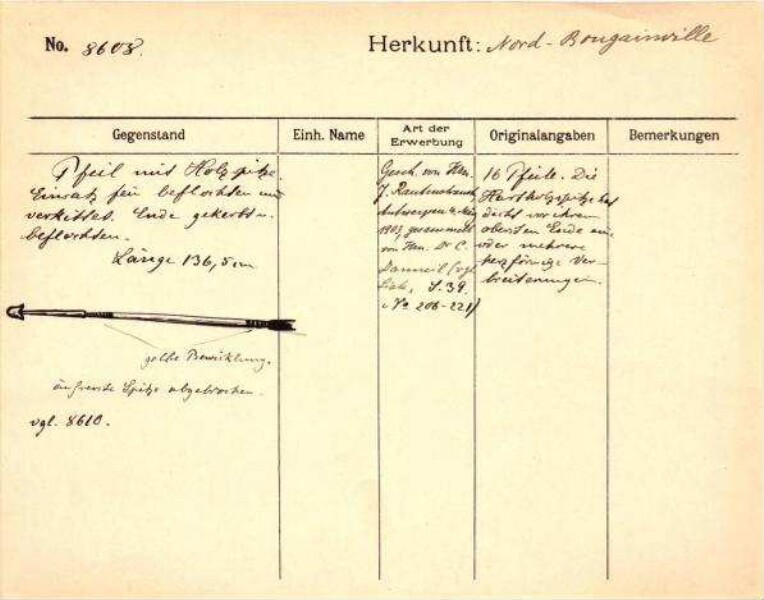 No. 8608. Herkunft: Nord-Bougainville
Gegenstand Einh. Name Art der Erwerbung Originalangaben Bemerkungen
Pfeil mit Holzspitze.
Einsatz fein beflochten und
verkittet. Ende gekerbt u.
beflochten.
Länge 136,5 cm
gelbe Bewicklung.
äußerste Spitze abgebrochen.
vgl. 8610.
Gesch. von Hrn.
J.
Antwerpen
1903, gesammelt
von Hrn. Dr C.
Danneil (vgl.
Liste, S. 39.
No 206-221)
16 Pfeile. Die
Hartholzspitze hat
dicht vor ihrem
obersten Ende eine
oder mehrere
herzförmige Ver-
breiterungen.